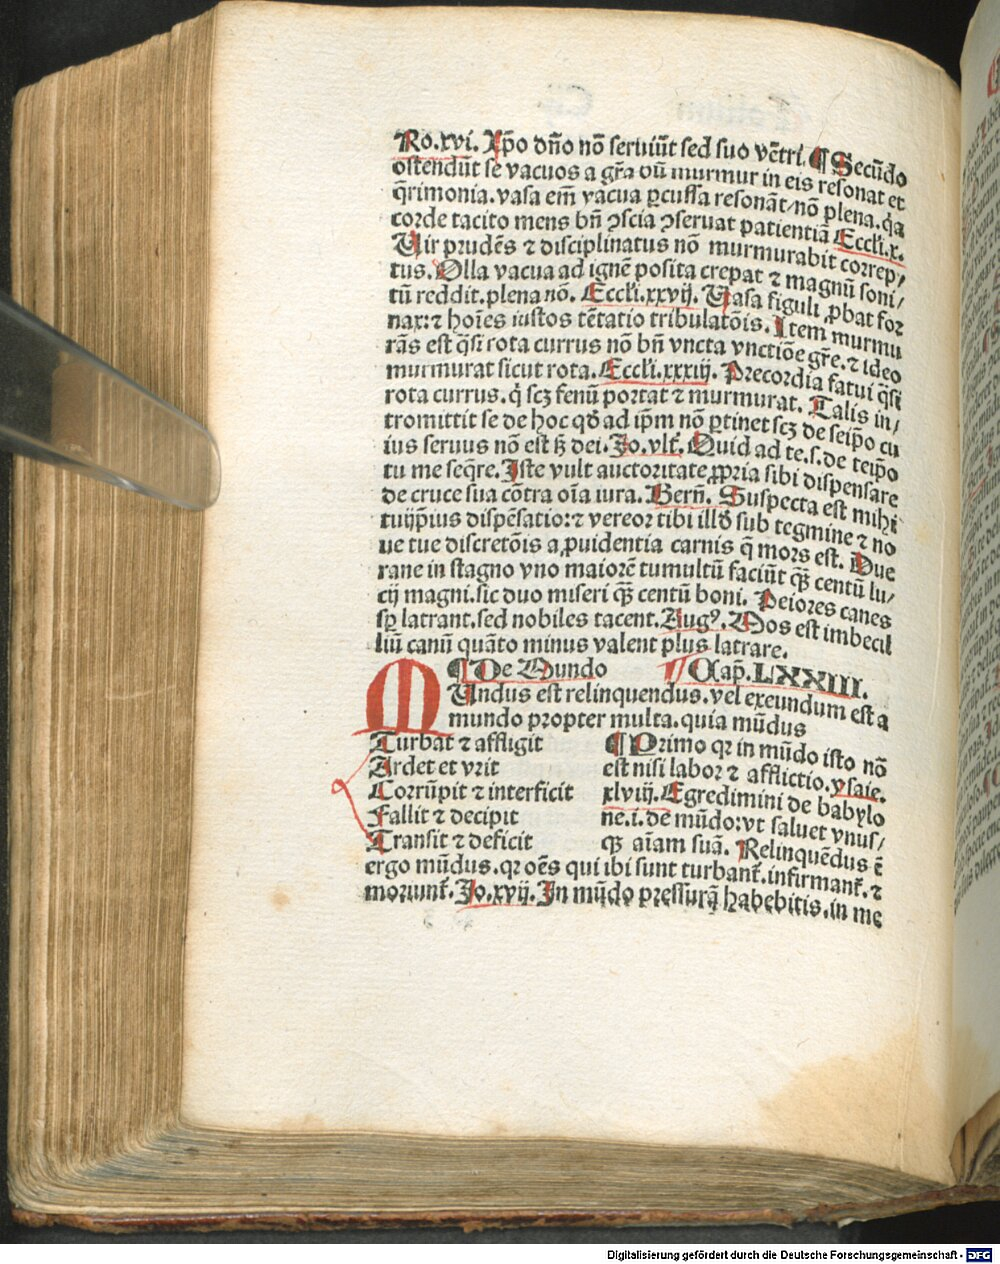 Ro.xvi. Xp̄o dn̄o nō seruiūt sed suo vētri. ¶ Secūdo
ostendūt se vacuos a gr̄a dū murmur in eis resonat et
q̄rimonia. vasa em̄ vacua ꝑcussa resonāt/nō plena. q̄a
corde tacito mens bn̄ ꝯscia ꝯseruat patientiā Eccli.x.
Uir prudēs ⁊ disciplinatus nō murmurabit correp/
tus. Olla vacua ad ignē posita crepat ⁊ magnū soni/
tū reddit. plena nō. Eccli.xxvij. Uasa figuli ꝓbat for
nax: ⁊ hoīes iustos tētatio tribulatōis. Item murmu
rās est q̄si rota currus nō bn̄ vncta vnctiōe gr̄e. ⁊ ideo
murmurat sicut rota. Eccli.xxxiij. Precordia fatui q̄si
rota currus. q̄ scꝫ fenū portat ⁊ murmurat. Talis in/
tromittit se de hoc qd̄ ad ip̄m nō ꝑtinet scꝫ de seip̄o cu
ius seruus nō est sꝫ dei. Jo.vlt̄. Quid ad te.s.de teip̄o
tu me seq̄re. Iste vult auctoritate ꝓpria sibi dispensare
de cruce sua cōtra oīa iura. Bern̄. Suspecta est mihi
tuijp̄ius dispēsatio: ⁊ vereor tibi illd̄ sub tegmine ⁊ no
ue tue discretōis a ꝓuidentia carnis q̄ mors est. Due
rane in stagno vno maiorē tumultū faciūt qꝫ̄ centū lu/
cij magni. sic duo miseri qꝫ̄ centū boni. Peiores canes
sp̄ latrant. sed nobiles tacent. Augꝰ. Mos est imbecil
liū canū quāto minus valent plus latrare.
¶ De Mundo ¶ Cap̄. LXXIII.
MUndus est relinquendus. vel exeundum est a
mundo propter multa. quia mūdus
Turbat ⁊ affligit
Ardet et vrit
Corrūpit ⁊ interficit
Fallit ⁊ decipit
Transit ⁊ deficit
¶ Primo qr in mūdo isto nō
est nisi labor ⁊ afflictio. ysaie.
xlviij. Egredimini de babylo
ne.i.de mūdo: vt saluet vnus/
qꝫ aīam suā. Relinquēdus ē
ergo mūdus. qr oēs qui ibi sunt turbant̄. infirmant̄. ⁊
moriunt̄. Jo.xvij. In mūdo pressurā habebitis. in me
Digitalisierung gefördert durch die Deutsche Forschungsgemeinschaft - DFG